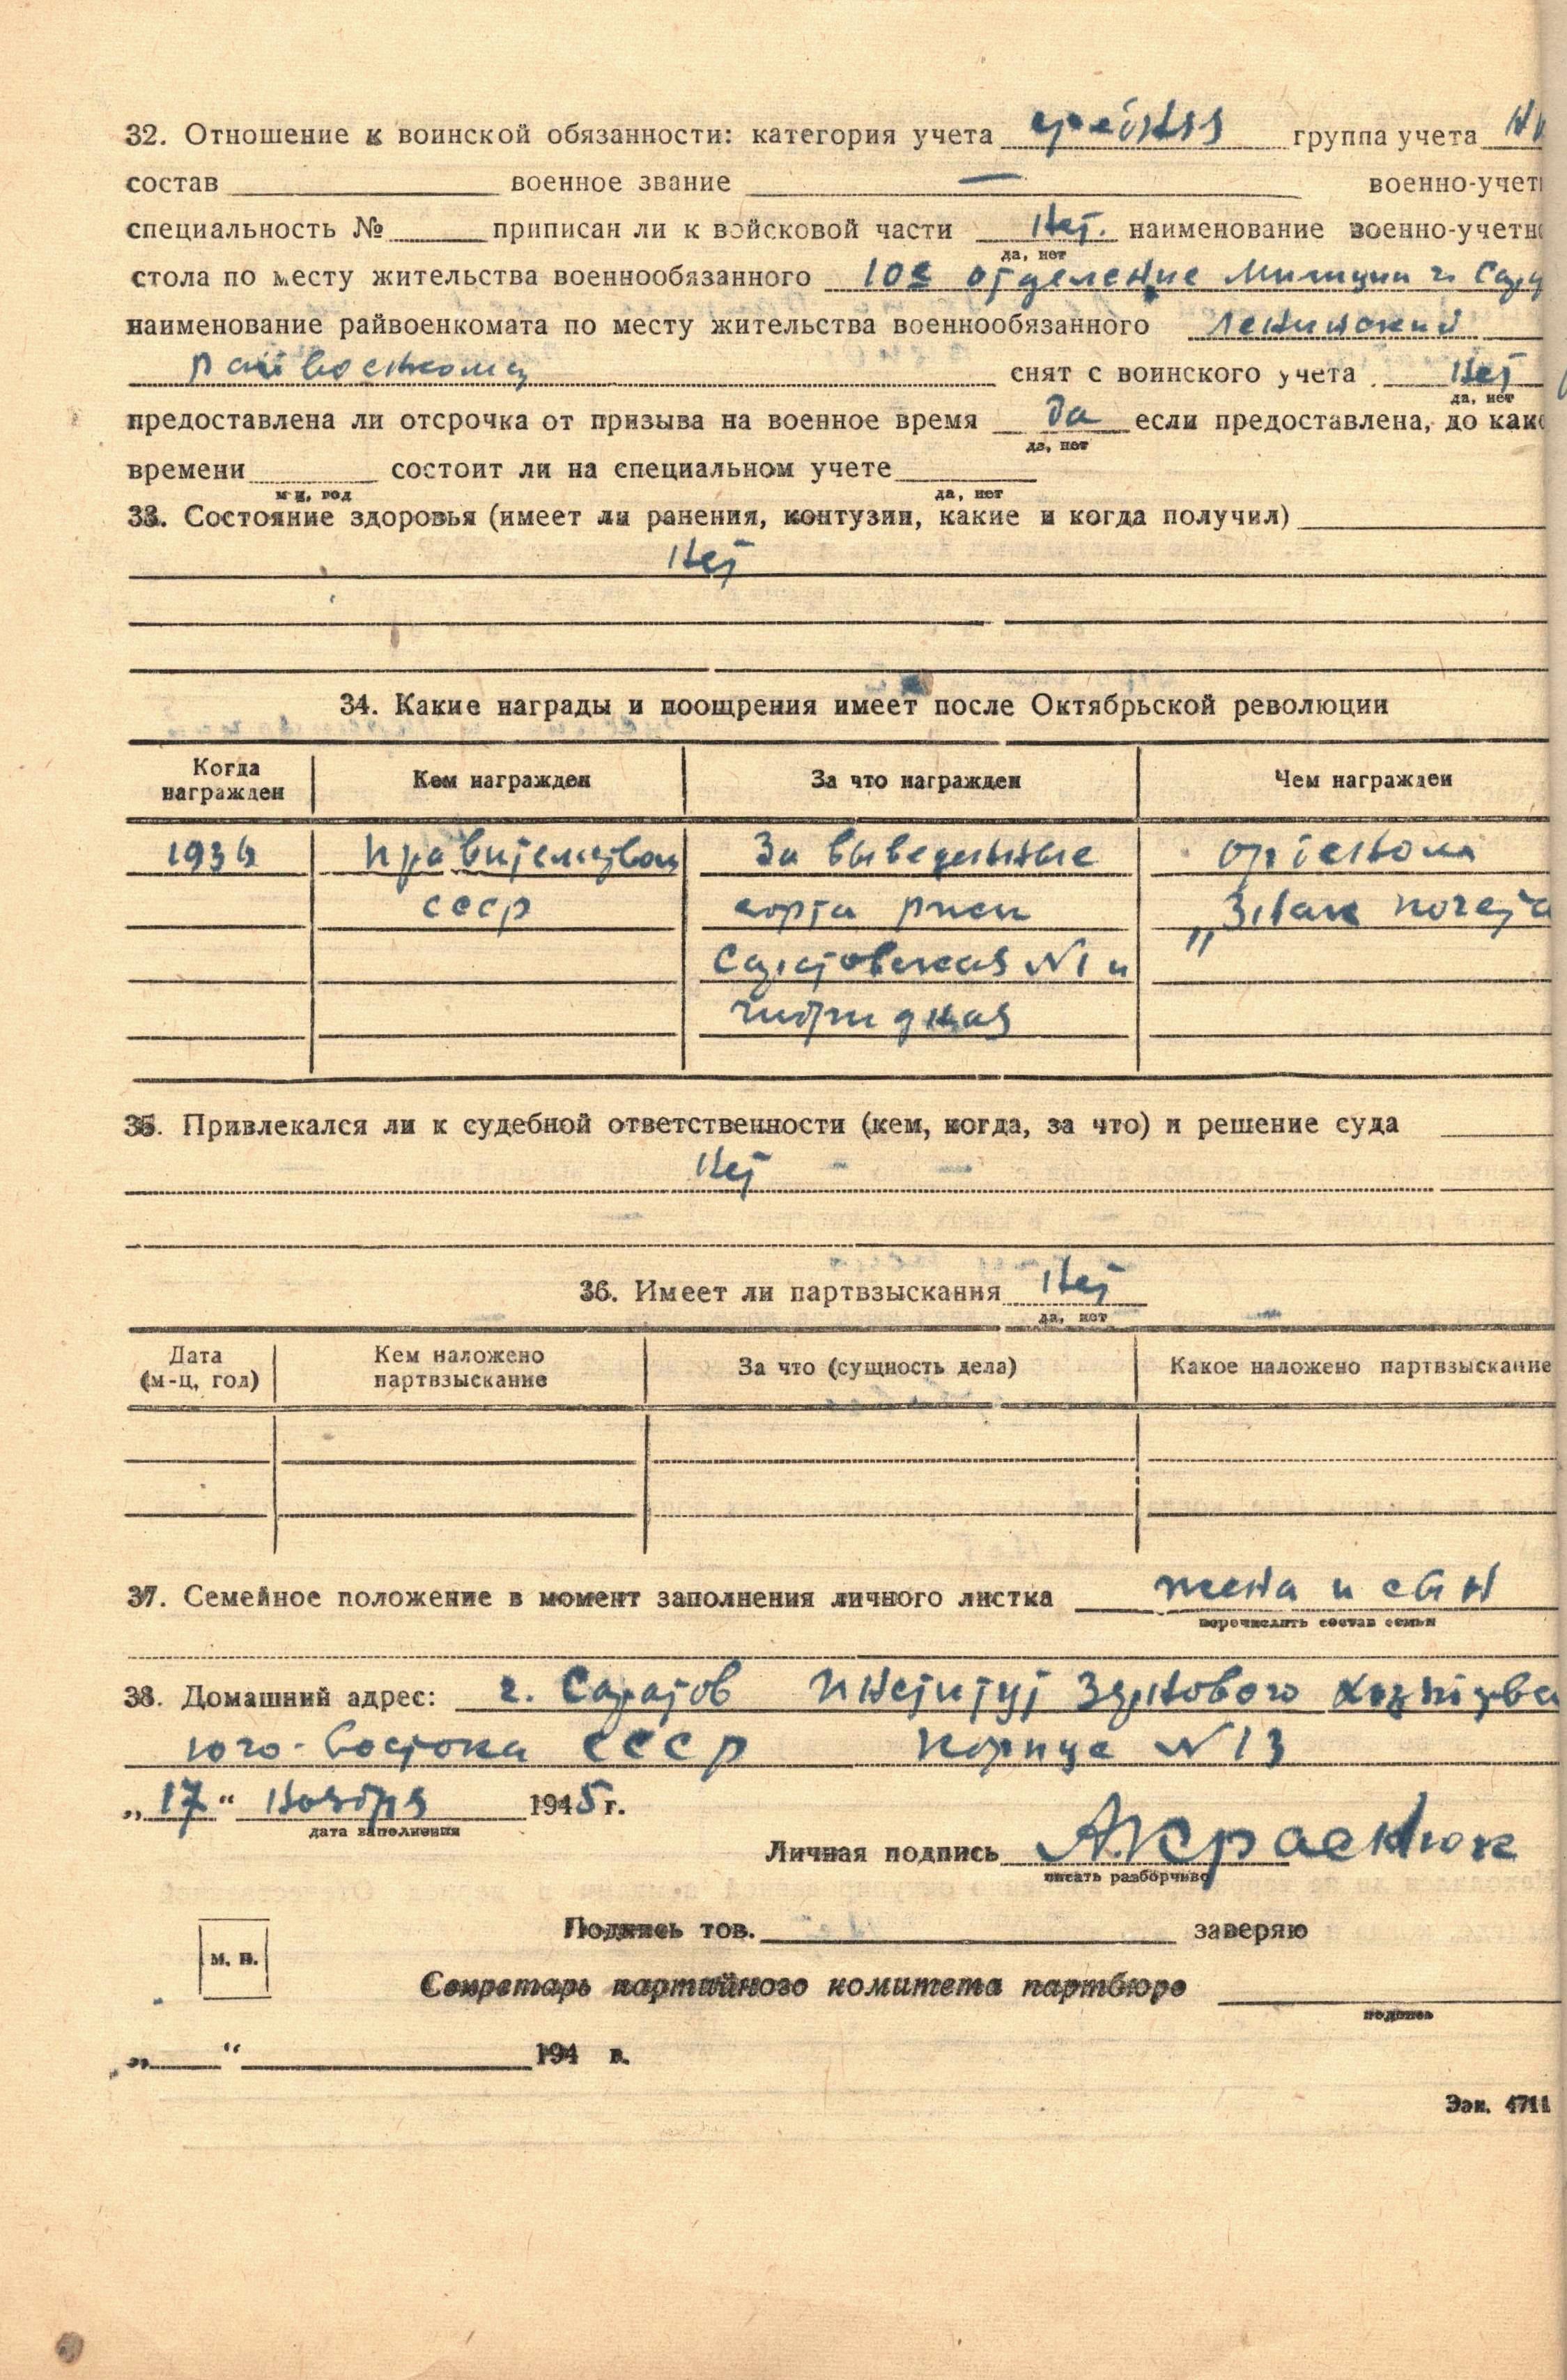 32. Отношение к воинской обязанности: категория учета третья группа учета
состав военное звание — военно-учетн
специальность № приписан ли к войсковой части Нет. наименование военно-учетно
да, нет
стола по месту жительства военнообязанного 10е отделение Милиции г. Сара
наименование райвоенкомата по месту жительства военнообязанного Ленинский
райвоенкомат снят с воинского учета Нет
да, нет
предоставлена ли отсрочка от призыва на военное время да если предоставлена, до како
да, нет
времени состоит ли на специальном учете
м-ц, год да, нет
33. Состояние здоровья (имеет ли ранения, контузии, какие и когда получил)
Нет
34. Какие награды и поощрения имеет после Октябрьской революции
Когда награжден Кем награжден За что награжден Чем награжден
Правительством За выведенные орденом
СССР сорта ржи „Знак почета
Саратовская №1 и
гибридная
35. Привлекался ли к судебной ответственности (кем, когда, за что) и решение суда
Нет
36. Имеет ли партвзыскания Нет
да, нет
Дата (м-ц, год) Кем наложено партвзыскание За что (сущность дела) Какое наложено партвзыскание
37. Семейное положение в момент заполнения личного листка жена и сын
перечислить состав семьи
38. Домашний адрес: г. Саратов Институт Зернового хозяйства
юго-Востока СССР Корпус №13
„17“ ноября 1945 г.
дата заполнения
Личная подпись А.Краснюк
писать разборчиво
Подпись тов. заверяю
м. п.
Секретарь партийного комитета партбюро
подпись
„ “ 194 г.
Зак. 4711